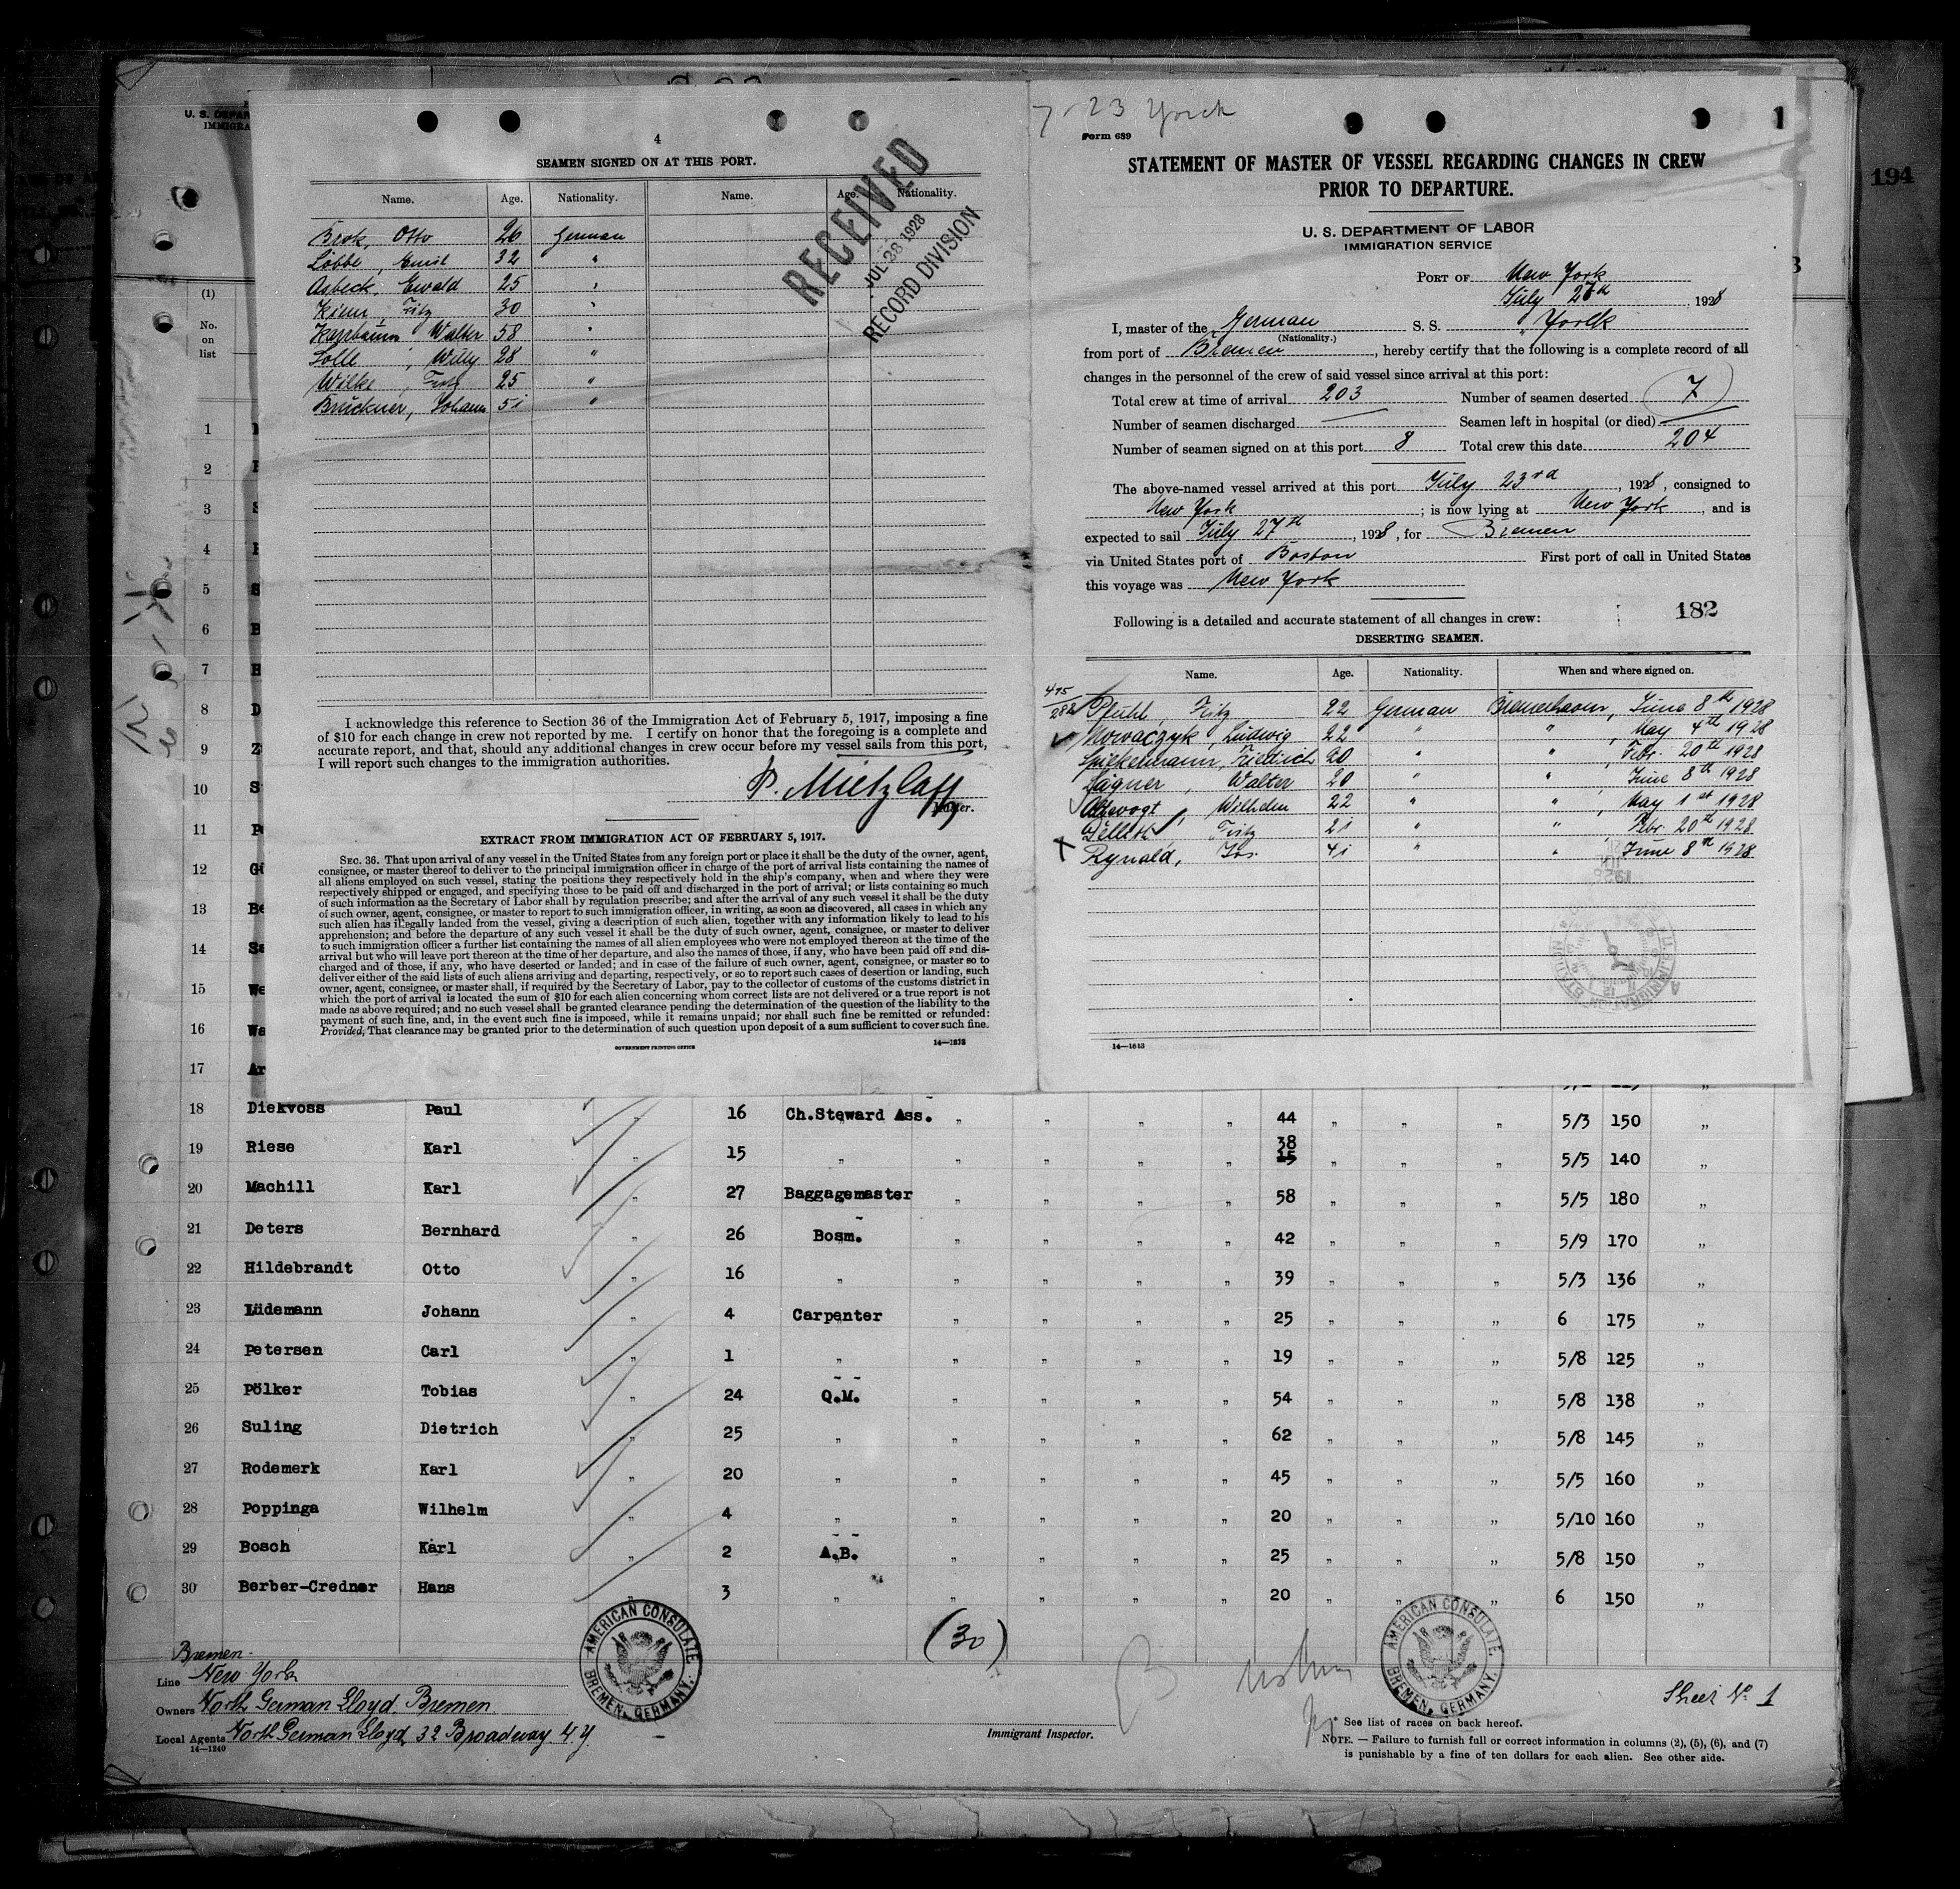 U. S. DEPAR
IMMIGRA
4
SEAMEN SIGNED ON AT THIS PORT.
Name. Age. Nationality. Name. Age. Nationality.
Brok, Otto 26 German
Löbbe, Emil 32 "
Asbeck, Ewald 25 "
Fritz 30 "
Walter 58 "
Willy 28 "
Wilke, Fritz 25 "
Brückner, Johann 51 "
RECEIVED
JUL 28 1928
RECORD DIVISION
I acknowledge this reference to Section 36 of the Immigration Act of February 5, 1917, imposing a fine
of $10 for each change in crew not reported by me. I certify on honor that the foregoing is a complete and
accurate report, and that, should any additional changes in crew occur before my vessel sails from this port,
I will report such changes to the immigration authorities.
P. Mietzlaff
Master.
EXTRACT FROM IMMIGRATION ACT OF FEBRUARY 5, 1917.
SEC. 36. That upon arrival of any vessel in the United States from any foreign port or place it shall be the duty of the owner, agent,
consignee, or master thereof to deliver to the principal immigration officer in charge of the port of arrival lists containing the names of
all aliens employed on such vessel, stating the positions they respectively hold in the ship's company, when and where they were
respectively shipped or engaged, and specifying those to be paid off and discharged in the port of arrival; or lists containing so much
of such information as the Secretary of Labor shall by regulation prescribe; and after the arrival of any such vessel it shall be the duty
of such owner, agent, consignee, or master to report to such immigration officer, in writing, as soon as discovered, all cases in which any
such alien has illegally landed from the vessel, giving a description of such alien, together with any information likely to lead to his
apprehension; and before the departure of any such vessel it shall be the duty of such owner, agent, consignee, or master to deliver
to such immigration officer a further list containing the names of all alien employees who were not employed thereon at the time of the
arrival but who will leave port thereon at the time of her departure, and also the names of those, if any, who have been paid off and dis-
charged and of those, if any, who have deserted or landed; and in case of the failure of such owner, agent, consignee, or master so to
deliver either of the said lists of such aliens arriving and departing, respectively, or so to report such cases of desertion or landing, such
owner, agent, consignee, or master shall, if required by the Secretary of Labor, pay to the collector of customs of the customs district in
which the port of arrival is located the sum of $10 for each alien concerning whom correct lists are not delivered or a true report is not
made as above required; and no such vessel shall be granted clearance pending the determination of the question of the liability to the
payment of such fine, and, in the event such fine is imposed, while it remains unpaid; nor shall such fine be remitted or refunded:
Provided, That clearance may be granted prior to the determination of such question upon deposit of a sum sufficient to cover such fine.
GOVERNMENT PRINTING OFFICE 14—1613
7-23 York
1
Form 689
STATEMENT OF MASTER OF VESSEL REGARDING CHANGES IN CREW
PRIOR TO DEPARTURE.
U. S. DEPARTMENT OF LABOR
IMMIGRATION SERVICE
PORT OF New York
July 27th 1928
I, master of the German S. S. "Yorck
(Nationality.)
from port of Bremen, hereby certify that the following is a complete record of all
changes in the personnel of the crew of said vessel since arrival at this port:
Total crew at time of arrival 203 Number of seamen deserted 7
Number of seamen discharged — Seamen left in hospital (or died) —
Number of seamen signed on at this port 8 Total crew this date 204
The above-named vessel arrived at this port July 23rd, 1928, consigned to
New York; is now lying at New York, and is
expected to sail July 27th, 1928, for Bremen
via United States port of Boston First port of call in United States
this voyage was New York
182
Following is a detailed and accurate statement of all changes in crew:
DESERTING SEAMEN.
Name. Age. Nationality. When and where signed on.
Pfühl, Fritz 22 German Bremerhaven, June 8th 1928
Nowaczyk, Ludwig 22 " " , May 4th 1928
Spickelmann, Friedrich 20 " " , Febr. 20th 1928
Walter 20 " " , June 8th 1928
Altevogt, Wilhelm 22 " " , May 1st 1928
Fritz 21 " " , Febr. 20th 1928
Rynald, Jos. 41 " " , June 8th 1928
14—1613
194
(1)
No.
on
list
1
2
3
4
5
6
7
8
9
10
11
12
13
14
15
16
17
18 Diekvoss Paul " 16 Ch.Steward Ass. " " " " 44 " " " 5/3 150 "
19 Riese Karl " 15 " " " " " 38 " " " 5/5 140 "
20 Machill Karl " 27 Baggagemaster " " " " 58 " " " 5/5 180 "
21 Deters Bernhard " 26 Bosm. " " " " 42 " " " 5/9 170 "
22 Hildebrandt Otto " 16 " " " " " 39 " " " 5/3 136 "
23 Lüdemann Johann " 4 Carpenter " " " " 25 " " " 6 175 "
24 Petersen Carl " 1 " " " " " 19 " " " 5/8 125 "
25 Pölker Tobias " 24 Q.M. " " " " 54 " " " 5/8 138 "
26 Suling Dietrich " 25 " " " " " 62 " " " 5/8 145 "
27 Rodemerk Karl " 20 " " " " " 45 " " " 5/5 160 "
28 Poppinga Wilhelm " 4 " " " " " 20 " " " 5/10 160 "
29 Bosch Karl " 2 A.B. " " " " 25 " " " 5/8 150 "
30 Berber-Credner Hans " 3 " " " " " 20 " " " 6 150 "
(30)
Bremen-
Line New York
Owners North German Lloyd, Bremen
Local Agents North German Lloyd, 32 Broadway N.Y.
14—1240
AMERICAN CONSULATE
BREMEN, GERMANY.
Immigrant Inspector.
AMERICAN CONSULATE
BREMEN, GERMANY.
Sheet No. 1
See list of races on back hereof.
NOTE. — Failure to furnish full or correct information in columns (2), (5), (6), and (7)
is punishable by a fine of ten dollars for each alien. See other side.